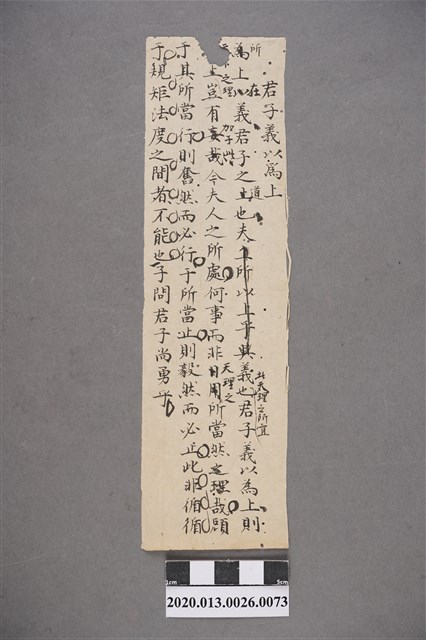 君子義以為上
為上以義君子之上也夫上所以上乎其義也君子義以為上則
所在
道
天理之所宜
之理
加于此
上豈有妄哉今夫人之所處何事而非日用所當然定理哉顧
天理之
于其所當行則奮然而必行于所當止則毅然而必止此非循循
于規矩法度之間者不能也子問君子尚勇乎
1cm
5cm
2020.013.0026.0073